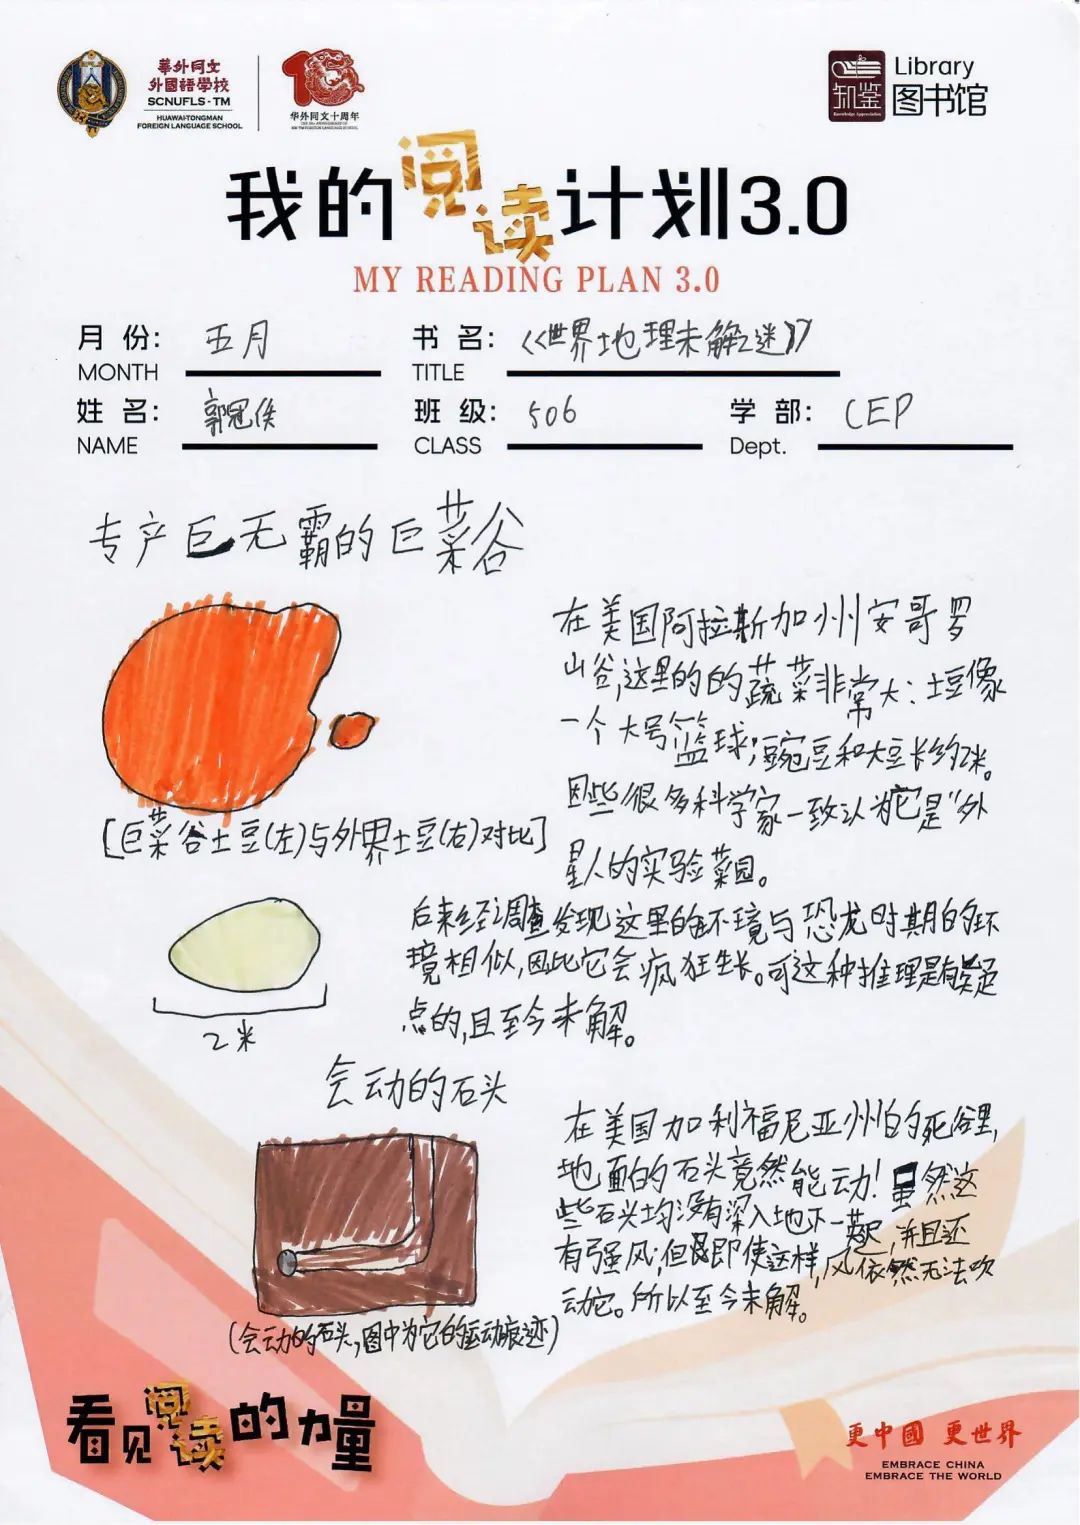 華外同文
外國語學校
SCNUFLS-TM
HUAWAI-TONGMAN
FOREIGN LANGUAGE SCHOOL
华外同文十周年
知鉴
Knowledge Appreciation
Library
图书馆
我的阅读计划3.0
MY READING PLAN 3.0
月 份: 五月 书 名: 《世界地理未解之迷》
MONTH TITLE
姓 名: 郭冠侯 班 级: 506 学 部: CEP
NAME CLASS Dept.
专产巨无霸的巨菜谷
在美国阿拉斯加州安哥罗
山谷,这里的的蔬菜非常大:土豆像
一个大号篮球;豌豆和大豆长约2米。
因些很多科学家一致认为它是“外
星人的实验菜园。
[巨菜谷土豆(左)与外界土豆(右)对比]
后来经调查发现这里的环境与恐龙时期的环
境相似,因此它会疯狂生长。可这种推理是有疑
点的,且至今未解。
2米
会动的石头
在美国加利福尼亚州的死谷里,
地面的石头竟然能动!虽然这
些石头均没有深入地下一英尺,并且还
有强风;但是即使这样,风依然无法吹
动它。所以至今未解。
(会动的石头,图中为它的运动痕迹)
看见阅读的力量
更中國 更世界
EMBRACE CHINA
EMBRACE THE WORLD